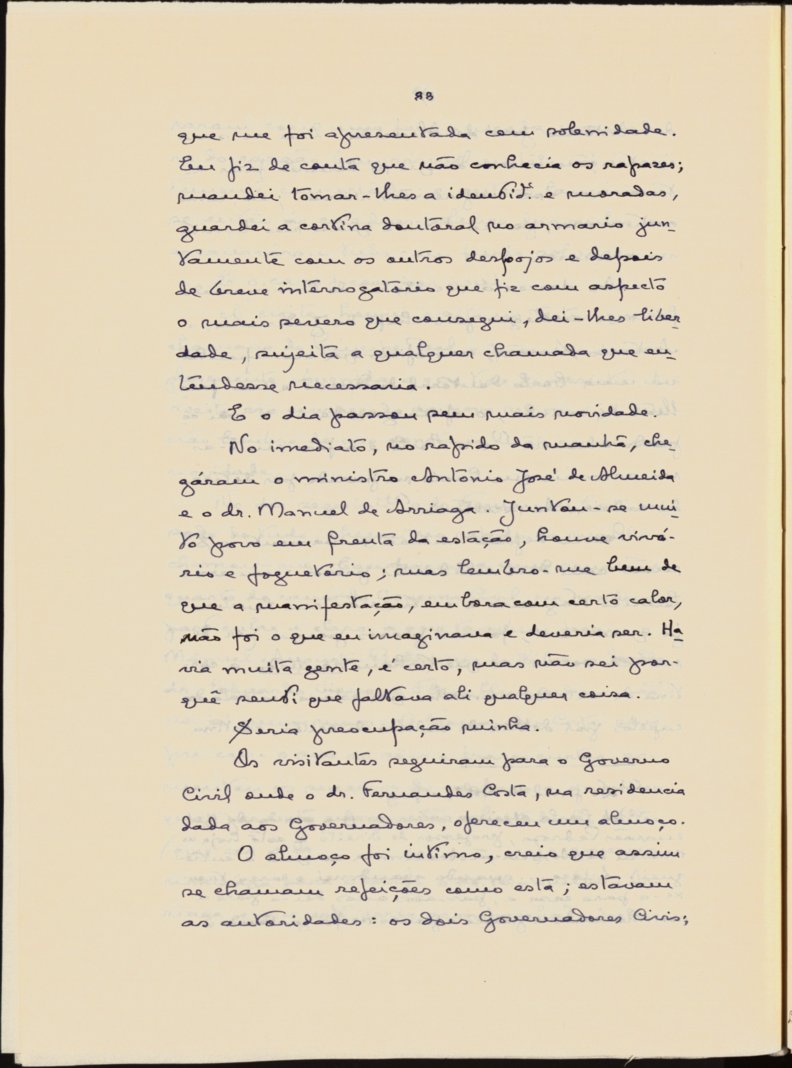 88
que me foi apresentada com solenidade.
Eu fiz de conta que não conhecia os rapazes;
mandei tomar-lhes a identid.e e moradas,
guardei a cortina doutoral no armario jun-
tamente com os outros despojos e depois
de breve interrogatório que fiz com aspecto
o mais severo que consegui, dei-lhes liber-
dade, sujeita a qualquer chamada que en-
tendesse necessaria.
E o dia passou sem mais novidade.
No imediato, no rapido da manhã, che-
gáram o ministro Antonio José de Almeida
e o dr. Manuel de Arriaga. Juntou-se mui-
to povo em frente da estação, houve vivó-
rio e foguetorio; mas lembro-me bem de
que a manifestação, embora com certo calor,
não foi o que eu imaginava e deveria ser. Ha-
via muita gente, é certo, mas não sei por-
quê senti que faltava ali qualquer coisa.
Seria preocupação minha.
Os visitantes seguiram para o Governo
Civil onde o dr. Fernandes Costa, na residencia
dada aos Governadores, ofereceu um almoço.
O almoço foi intimo, creio que assim
se chamam refeições como esta; estavam
as autoridades: os dois Governadores Civis;